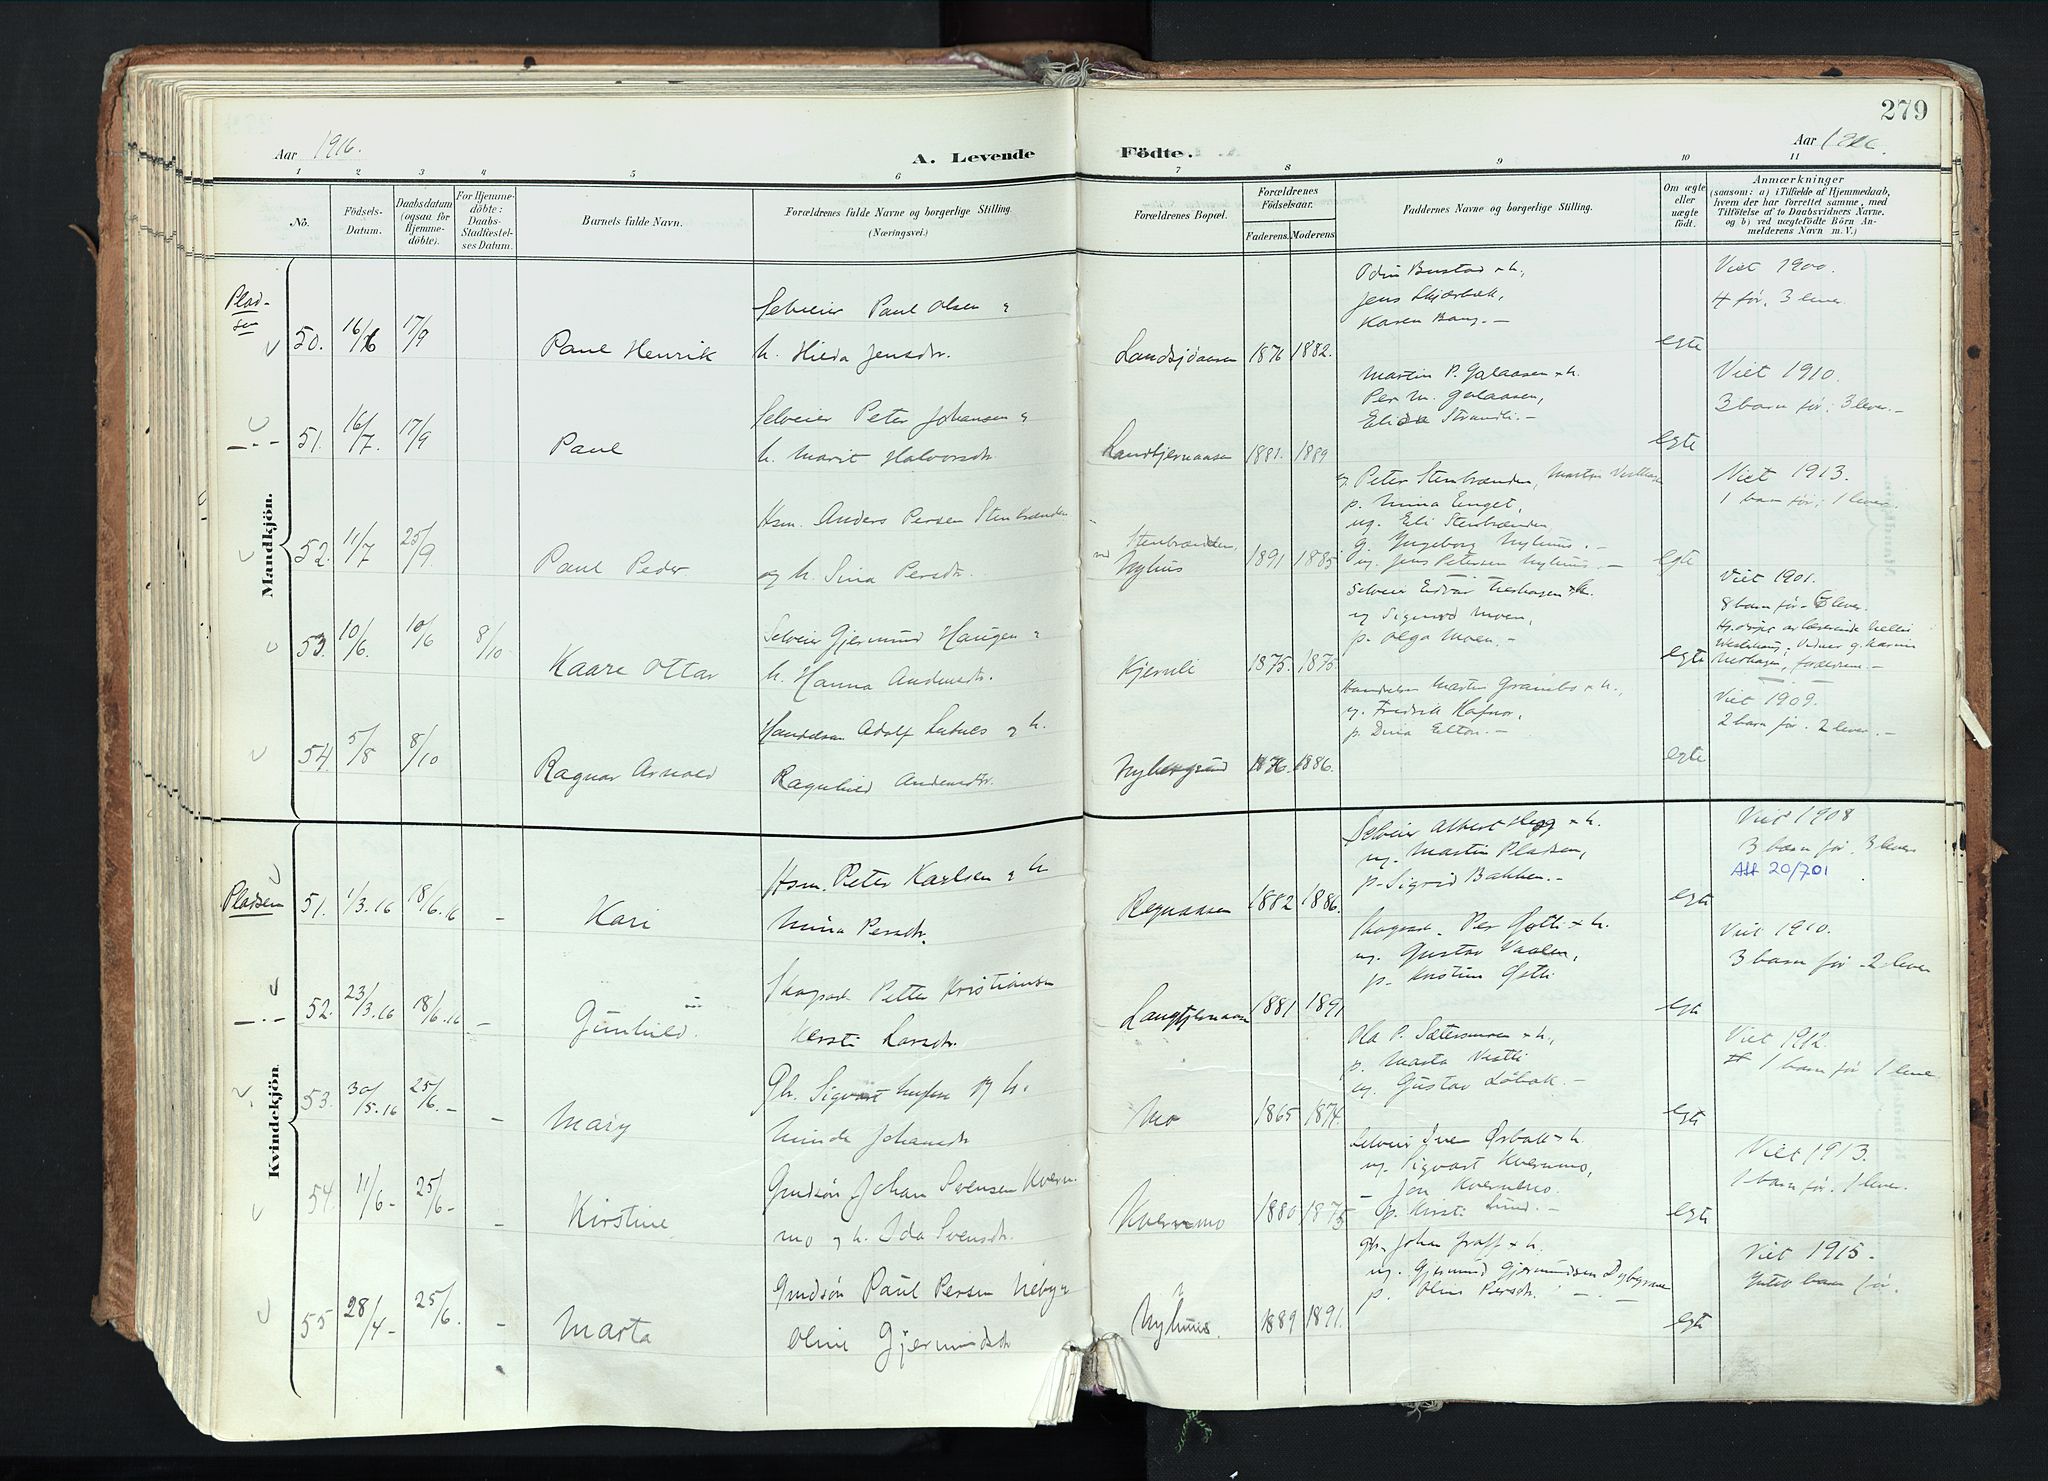 279
Aar 1916.
A. Levende Födte.
Aar 1916.
1 2 3 4 5 6 7 8 9 10 11
No.
Födsels-
Datum.
Daabsdatum
(ogsaa for
Hjemme-
döbte).
For Hjemme-
döbte:
Daabs-
Stadfæstel-
ses Datum.
Barnets fulde Navn.
Forældrenes fulde Navne og borgerlige Stilling.
(Næringsvei.)
Forældrenes Bopæl.
Forældrenes
Födselsaar.
Faderens. Moderens.
Faddernes Navne og borgerlige Stilling.
Om ægte
eller
uægte
födt.
Anmærkninger
(saasom: a) i Tilfælde af Hjemmedaab,
hvem der har forrettet samme, med
Tilföielse af to Daabsvidners Navne,
og b) ved uægtefödte Börn An-
melderens Navn m. V.)
Mandkjön.
Plad-
sen
50. 17/9
Paul Henrik
Selveier Paul Olsen &
h. Hilda Jensdtr.
1876 1882.
Odin Bustad & h.,
Jens Skjærbæk,
Karen Bang. –
egte
Viet 1900.
4 før. 3 lever.
51. 16/7. 17/9
Paul
Selveier Peter Johansen &
h. Marit Halvorsdtr.
1881. 1889
Martin P. Galaasen & h.
Per M. Galaasen,
Elida Strandli. –
egte
Viet 1910.
3 barn før; 3 lever. –
52. 11/7 25/9
Paul Peder
Hsm. Anders Persen Stenbrænden
og h. Sina Persdtr.
Stenbrænden,
Nyhus
1891 1885
Peter Stenbrænden, Martin
p. Mina Enget,
ug. Eli Stenbrænden,
g. Yngeborg Nyhus. –
ug. Jens Petersen Nyhus. –
egte
Viet 1913.
1 barn før; 1 lever.
53. 10/6. 10/6 8/10
Kaare Ottar
Selveier Gjermund Haugen &
h. Hanna Andersdtr.
Kjernli
1875. 1875
Selveier Edvar Neshagen & h.
ug Sigurd Moen,
p. Olga Moen. –
egte
Viet 1901.
8 barn før – 6 lever.
Neshagen, forældrene. –
54. 5/8 8/10
Ragnar Arnold
Handelsm. Adolf Lutnes og h.
Ragnhild Andersdtr.
Nybergsund
1876. 1886.
Handelsm. Martin Grambo & h.,
ug. Fredrik Hafnor,
p. Dina Elton. –
egte
Viet 1909.
2 barn før. 2 lever. –
Kvindekjön.
Pladsen
51. 1/3.16 18/6.16 –
Kari
Hsm. Peter Karlsen & h
Mina Persdtr.
Regnaasen
1882 1886.
Selveier Albert Hegg & h.
ug. Martin Pladsen,
p. Sigrid Bakken. –
egte
Viet 1908
3 barn før. 3 lever
Att 20/701
52. 23/3.16 18/6.16 –
Gunhild.
Skogsarb. Petter Kristiansen
Kersti Larsdtr.
Langtjernaasen
1881 1891
Skogsarb. Per Galli & h.
ug. Gustav Vaalen,
p. Kristine
egte
Viet 1910.
3 barn før – 2 lever
53. 30/5.16 25/6. – –
Mary
Gbr. Sigvart Nyhus og h.
Minda Johansdtr
Mo
1865 1874.
Ola P. Sætermoen & h.,
p. Marta Vestli
ug. Gustav Løbak. –
egte
Viet 1912.
1 barn før 1 lever.
54. 11/6 – 25/6 – –
Kirstine
Grndsøn Johan Svensen Kvern-
mo og h. Ida Svensdtr.
Kvernmo
1880 1875
Selveier Iver Ørbak & h.
ug. Sigvart Kvernmo,
– Jon Kvernmo.
p. Kirsti Lund. –
egte
Viet 1913.
1 barn før. 1 lever.
55 28/4 – 25/6. –
Marta
Grndsøn Paul Persen Neby &
Oline Gjermundsdtr
Nyhus.
1889 1891.
Gbr. Johan Graff & h.
ug. Gjermund Gjermundsen Dybgrav
p. Oline Persdtr. – . –
egte
Viet 1915.
Intet barn før.